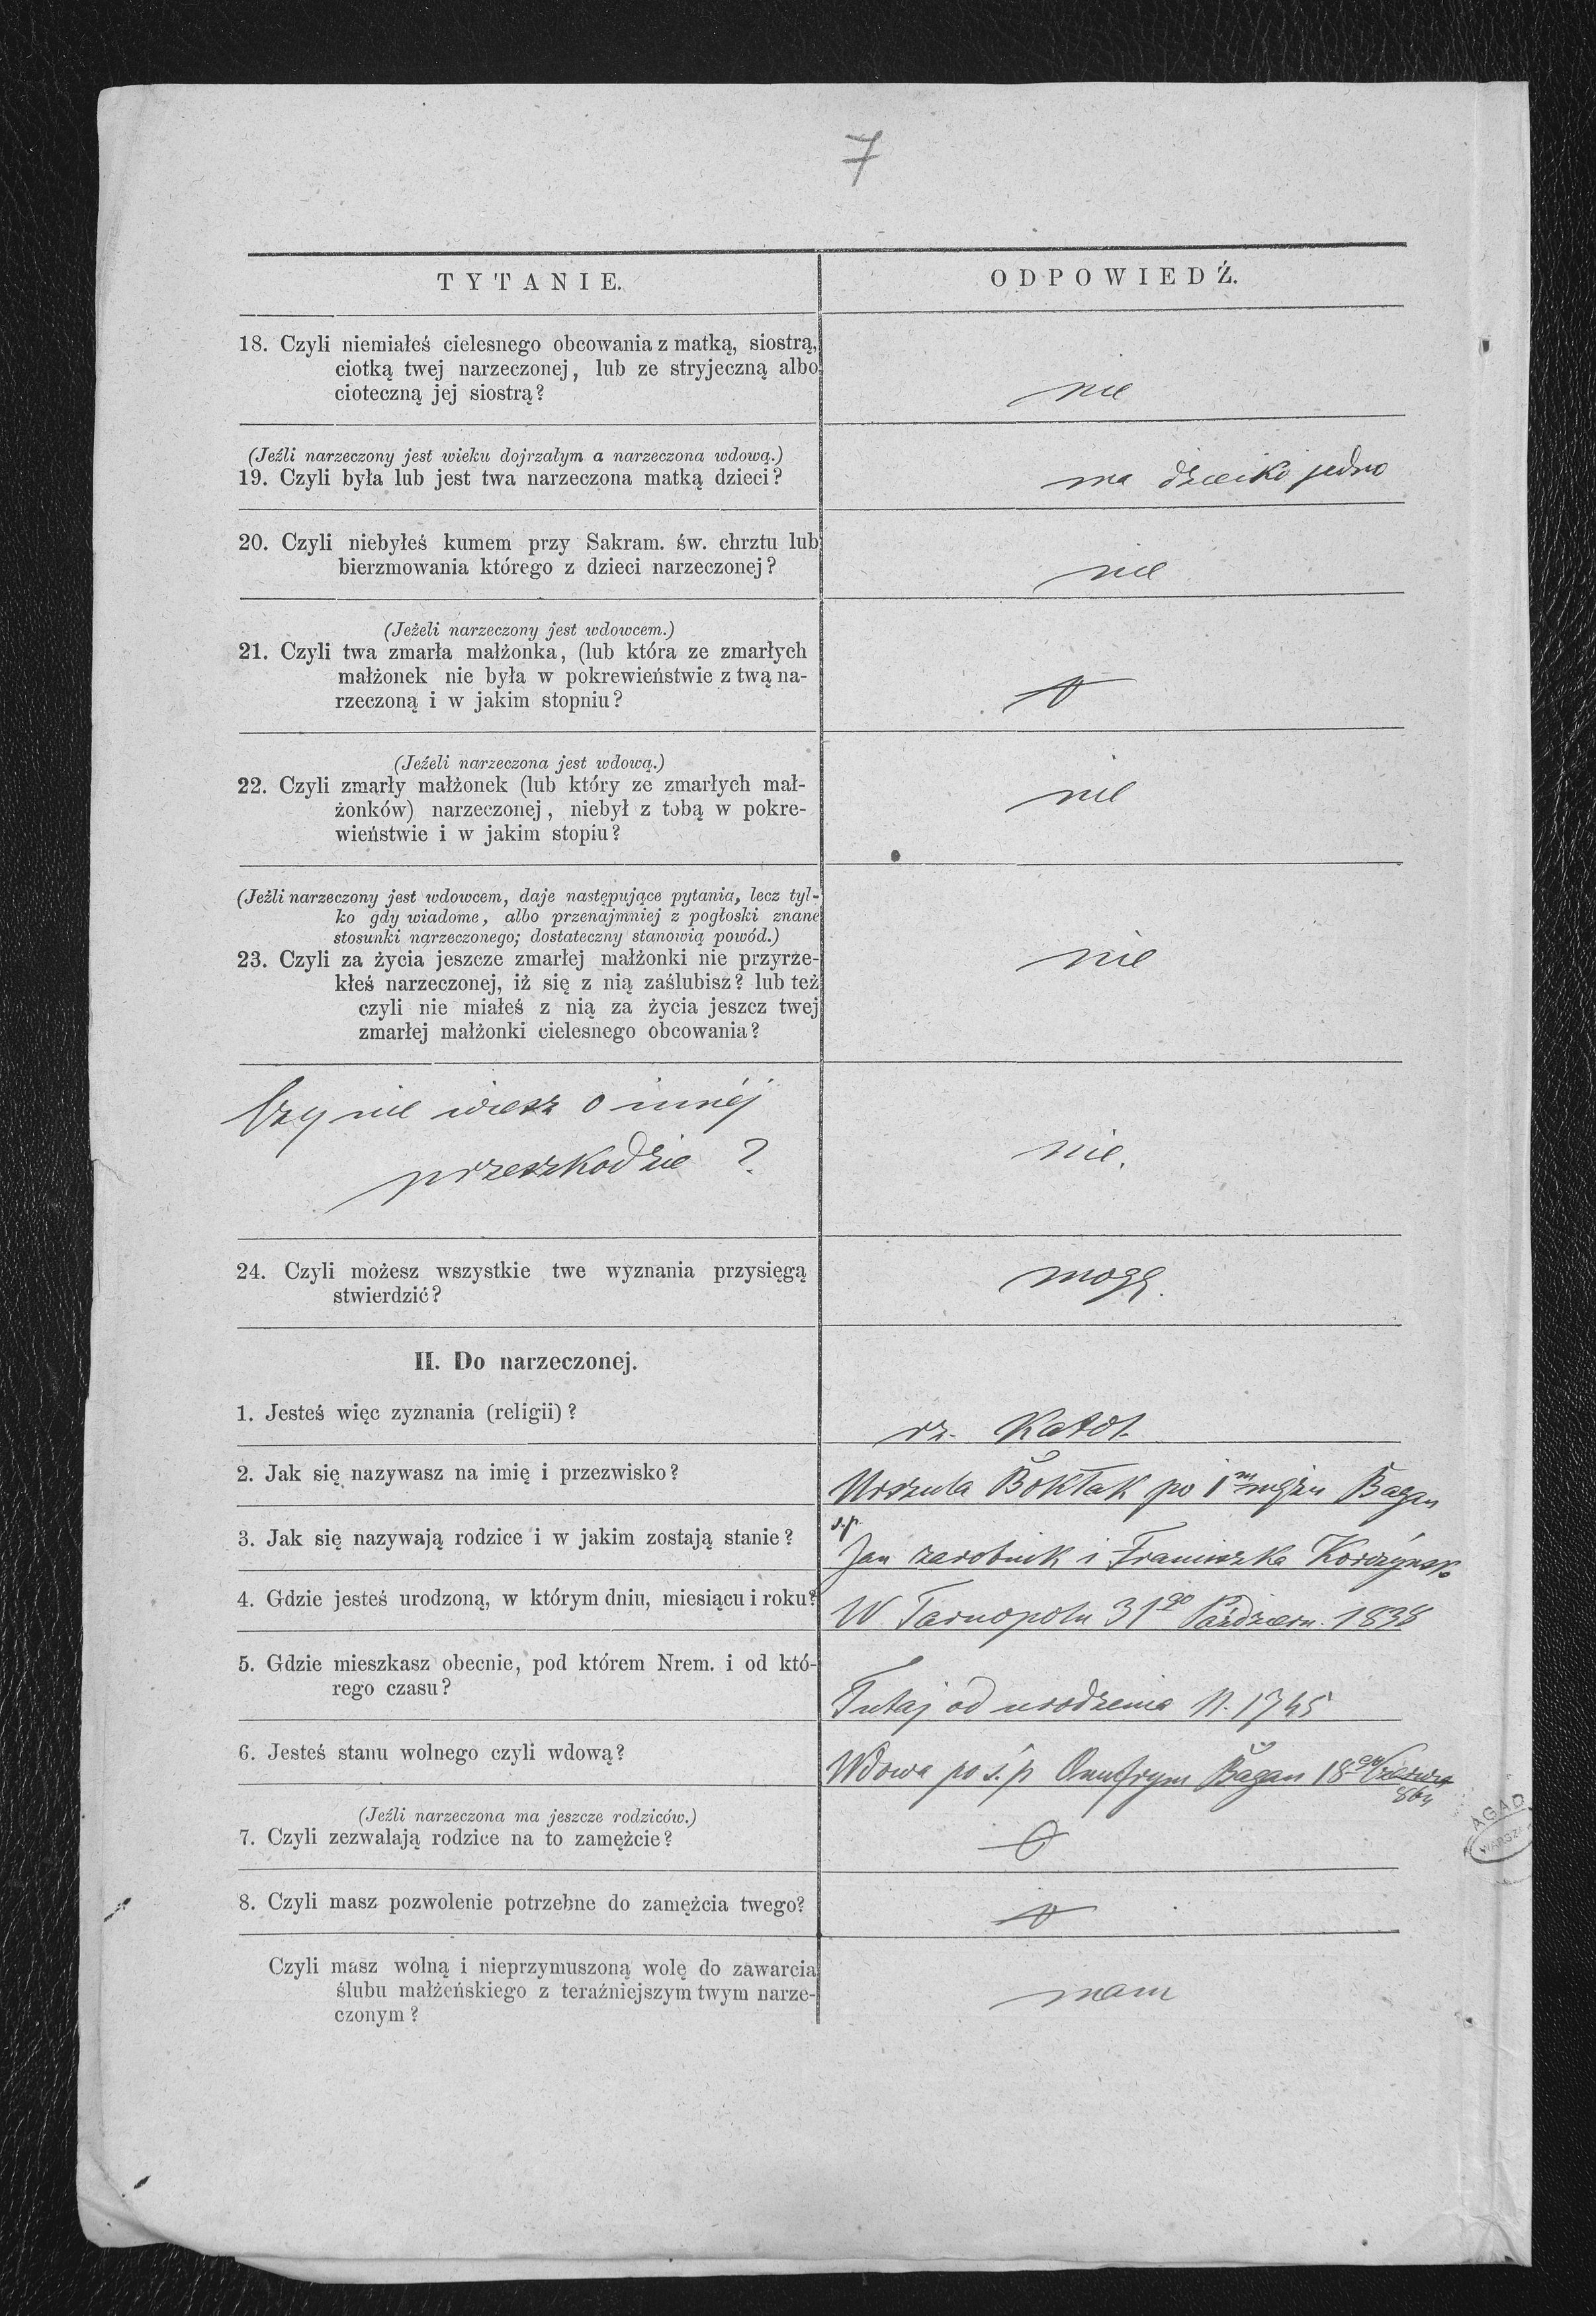 7
TYTANIE.
ODPOWIEDŹ.
18. Czyli niemiałeś cielesnego obcowania z matką, siostrą,
ciotką twej narzeczonej, lub ze stryjeczną albo
cioteczną jej siostrą?
nie
(Jeźli narzeczony jest wieku dojrzałym a narzeczona wdową.)
19. Czyli była lub jest twa narzeczona matką dzieci?
ma dziecko jedno
20. Czyli niebyłeś kumem przy Sakram. św. chrztu lub
bierzmowania którego z dzieci narzeczonej?
nie
(Jeżeli narzeczony jest wdowcem.)
21. Czyli twa zmarła małżonka, (lub która ze zmarłych
małżonek nie była w pokrewieństwie z twą na-
rzeczoną i w jakim stopniu?
(Jeżeli narzeczona jest wdową.)
22. Czyli zmarły małżonek (lub który ze zmarłych mał-
żonków) narzeczonej, niebył z tobą w pokre-
wieństwie i w jakim stopiu?
nie
(Jeżli narzeczony jest wdowcem, daje następujące pytania, lecz tyl-
ko gdy wiadome, albo przenajmniej z pogłoski znane
stosunki narzeczonego; dostateczny stanowią powód.)
23. Czyli za życia jeszcze zmarłej małżonki nie przyrze-
kłeś narzeczonej, iż się z nią zaślubisz? lub też
czyli nie miałeś z nią za życia jeszcz twej
zmarłej małżonki cielesnego obcowania?
nie
Czy nie wiesz o innéj
przeszkodzie ?
nie.
24. Czyli możesz wszystkie twe wyznania przysięgą
stwierdzić?
mogę.
II. Do narzeczonej.
1. Jesteś więc zyznania (religii)?
rz. Katol.
2. Jak się nazywasz na imię i przezwisko?
Urszula Boktak po 1m mężu Bagan
3. Jak się nazywają rodzice i w jakim zostają stanie?
s.p.
Jan zarobnik i Franciszka
4. Gdzie jesteś urodzoną, w którym dniu, miesiącu i roku?
W Tarnopolu 31go Październ. 1838
5. Gdzie mieszkasz obecnie, pod którem Nrem. i od któ-
rego czasu?
Tutaj od urodzenia N. 1745
6. Jesteś stanu wolnego czyli wdową?
Wdowa po ś.p. Onufrym Bagan 18go Czerwca
864
(Jeźli narzeczona ma jeszcze rodziców.)
7. Czyli zezwalają rodzice na to zamężcie?
8. Czyli masz pozwolenie potrzebne do zamężcia twego?
Czyli masz wolną i nieprzymuszoną wolę do zawarcia
ślubu małżeńskiego z teraźniejszym twym narze-
czonym?
mam
AGAD